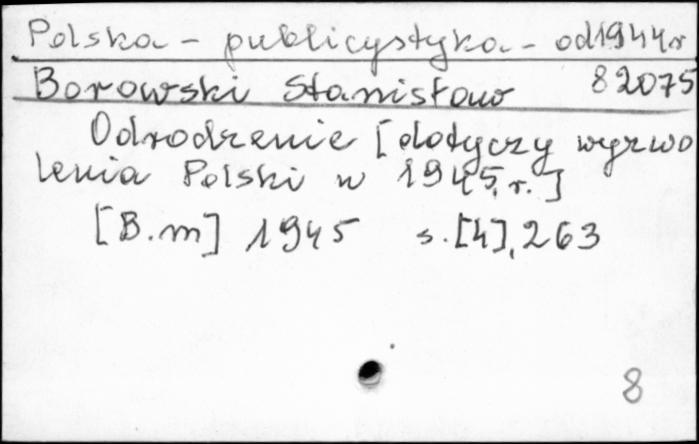 Polska - publicystyka - od 1944 r
Borowski Stanisław 82075
Odrodzenie [dotyczy wyzwo
lenia Polski w 1945 r.]
[B.m] 1945 s. [4], 263
8